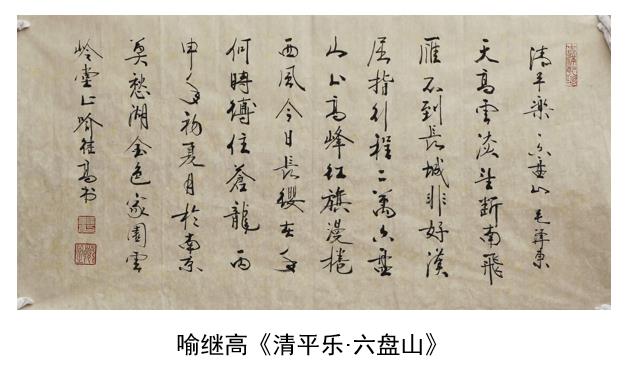 清平樂 六盘山 毛澤東
天高雲淡望断南飛
雁不到長城非好漢
屈指行程二萬六盘
山上高峰紅旗漫捲
西風今日長纓在手
何時縛住蒼龍 丙
申年初夏月於南京
莫愁湖金色家園雲
岭堂上喻继高书
喻继高《清平乐·六盘山》